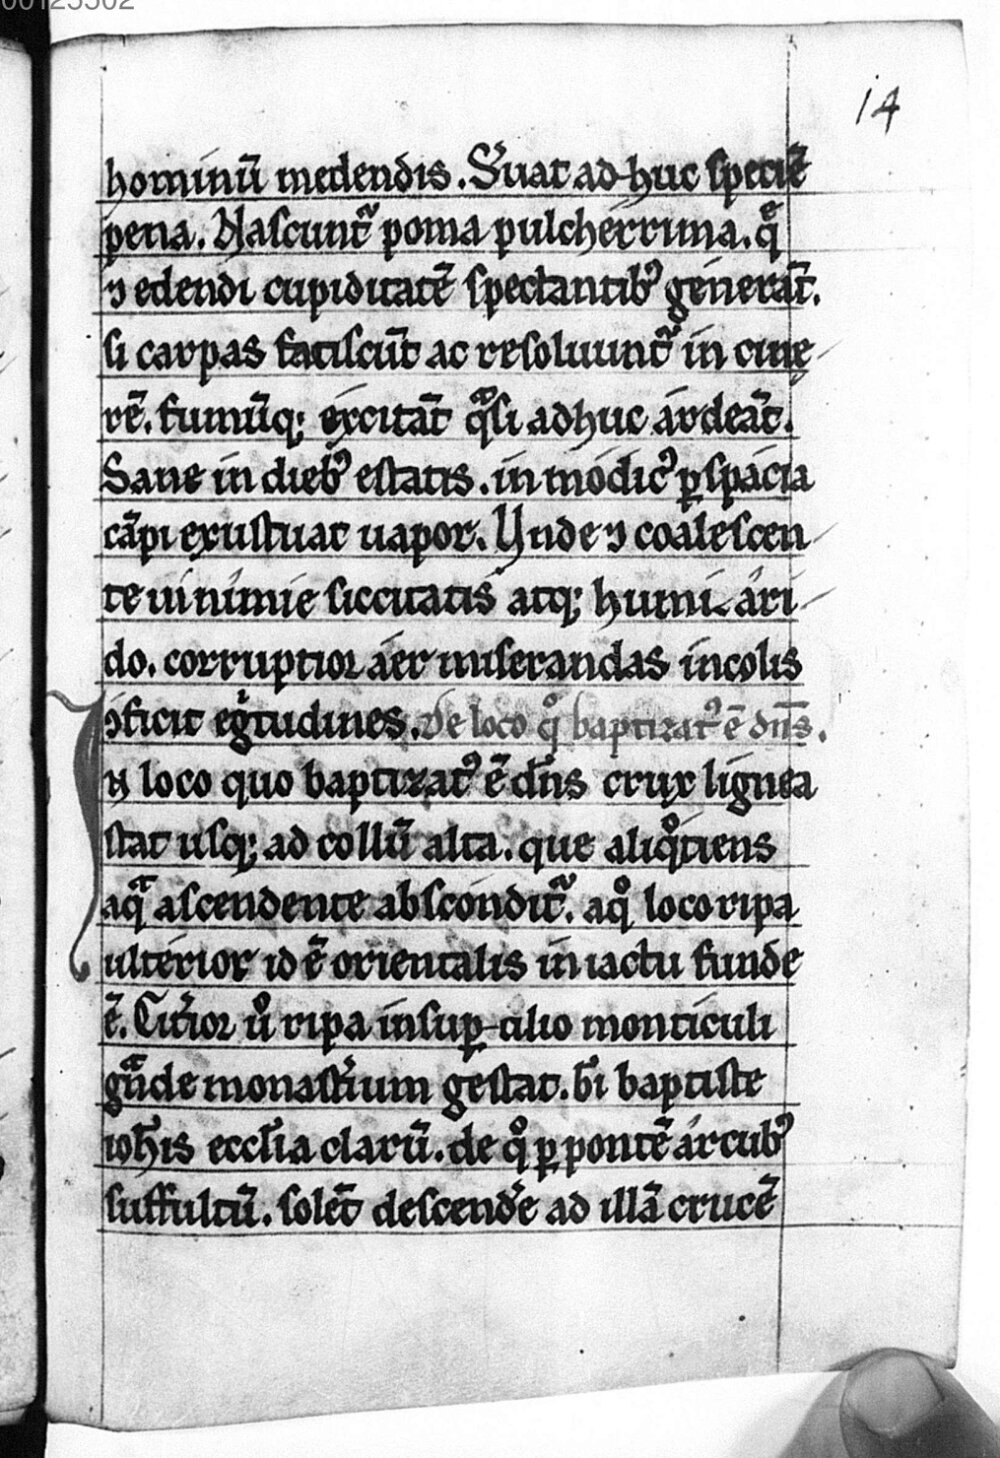 00125502
14
hominū medendis. S'uat ad huc speciē
pena. Nascunt᷑ poma pulcherrima. q̄
⁊ edendi cupiditatē spectantibꝰ generāt.
si carpas fatiscūt ac resoluunt᷑ in cine
rē. fumūq; excitāt qͣsi adhuc ardeāt.
Sane in diebꝰ estatis. in modicꝰ ꝑ spacia
cāpi exustuat uapor. Vnde ⁊ coalescen
te ui nimie siccitatis atq; humi ari
do. corruptior aer miserandas incolis
ꝯficit eg̾tudines. De loco qͦ baptizatꝰ ē dn̄s.
In loco quo baptizatꝰ ē dn̄s crux lignea
stat usq; ad collū alta. que aliqͦtiens
aqͣ ascendente abscondit᷑. a qͦ loco ripa
ulterior id ē orientalis in iactu funde
ē. Cit'ior uͦ ripa in suꝑcilio monticuli
gͣnde monast'ium gestat. b̄i baptiste
ioh̄is eccl̄ia clarū. de qͦ ꝑ pontē arcubꝰ
suffultū. solēt descend'e ad illā crucē